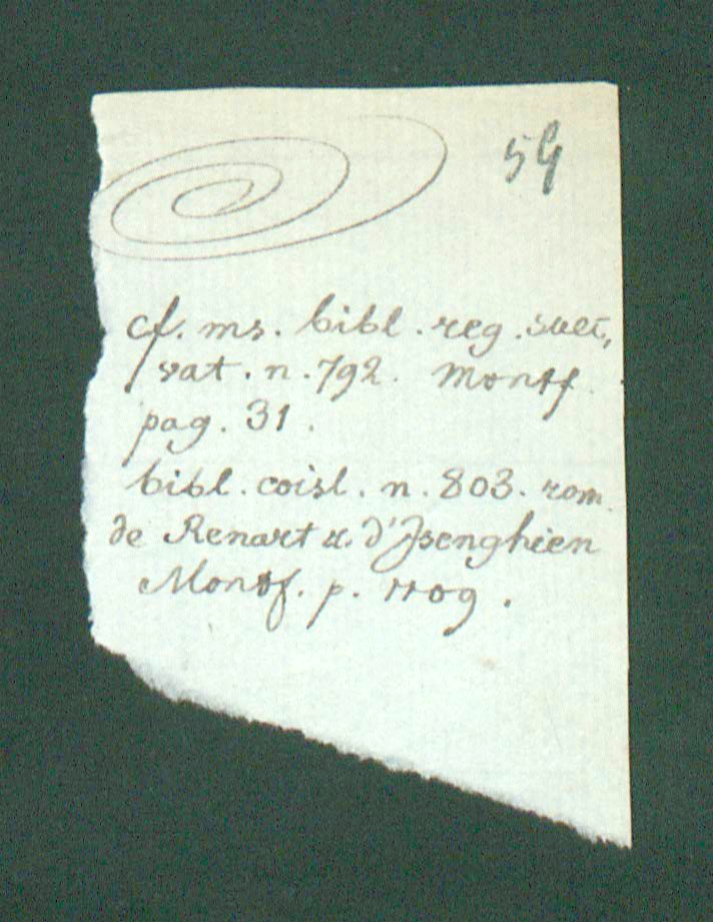 59
cf. ms. bibl. reg. suet,
vat. n. 792. Montf.
pag. 31.
bibl. coisl. n. 803. rom.
de Renart u. d'Isenghien
Montf. p. 1109.